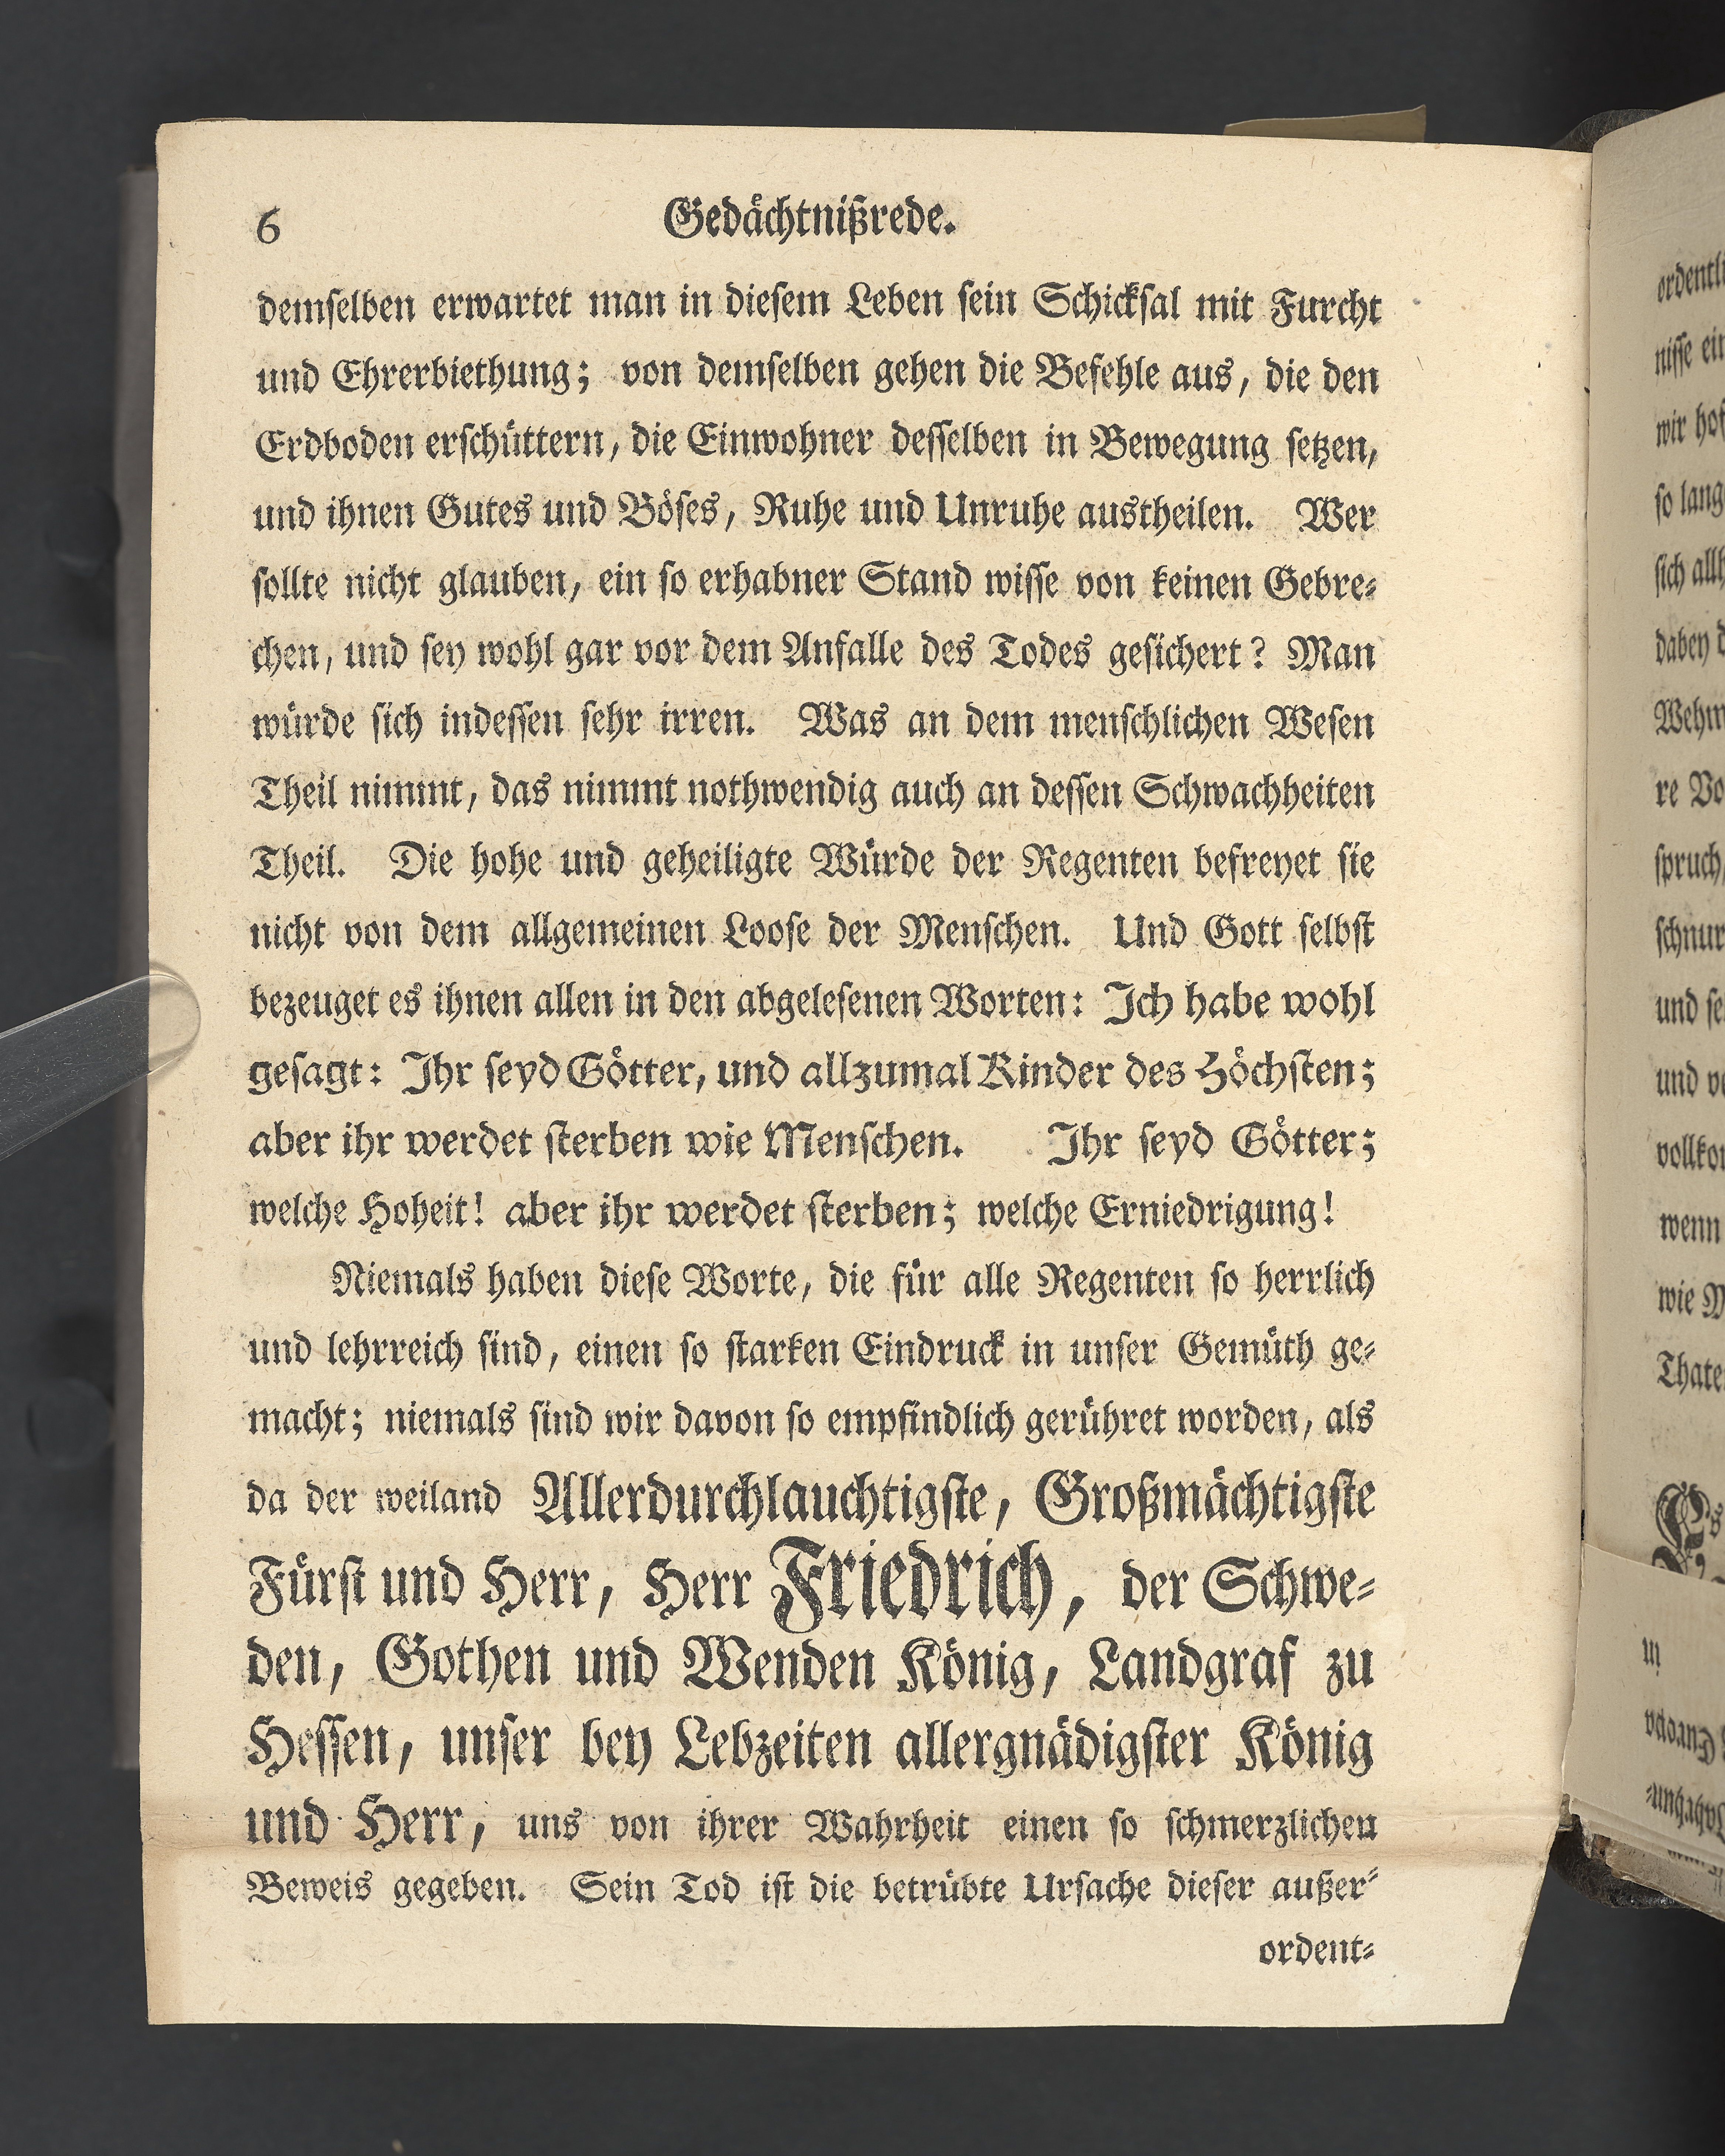 6 Gedächtnißrede.
demselben erwartet man in diesem Leben sein Schicksal mit Furcht
und Ehrerbiethung; von demselben gehen die Befehle aus, die den
Erdboden erschüttern, die Einwohner desselben in Bewegung setzen,
und ihnen Gutes und Böses, Ruhe und Unruhe austheilen. Wer
sollte nicht glauben, ein so erhabner Stand wisse von keinen Gebre⸗
chen, und sey wohl gar vor dem Anfalle des Todes gesichert? Man
würde sich indessen sehr irren. Was an dem menschlichen Wesen
Theil nimmt, das nimmt nothwendig auch an dessen Schwachheiten
Theil. Die hohe und geheiligte Würde der Regenten befreyet sie
nicht von dem allgemeinen Loose der Menschen. Und Gott selbst
bezeuget es ihnen allen in den abgelesenen Worten: Ich habe wohl
gesagt: Ihr seyd Götter, und allzumal Kinder des Höchsten;
aber ihr werdet sterben wie Menschen. Ihr seyd Götter;
welche Hoheit! aber ihr werdet sterben; welche Erniedrigung!
Niemals haben diese Worte, die für alle Regenten so herrlich
und lehrreich sind, einen so starken Eindruck in unser Gemüth ge⸗
macht; niemals sind wir davon so empfindlich gerühret worden, als
da der weiland Allerdurchlauchtigste, Großmächtigste
Fürst und Herr, Herr Friedrich, der Schwe⸗
den, Gothen und Wenden König, Landgraf zu
Hessen, unser bey Lebzeiten allergnädigster König
und Herr, uns von ihrer Wahrheit einen so schmerzlichen
Beweis gegeben. Sein Tod ist die betrübte Ursache dieser außer⸗
ordent⸗